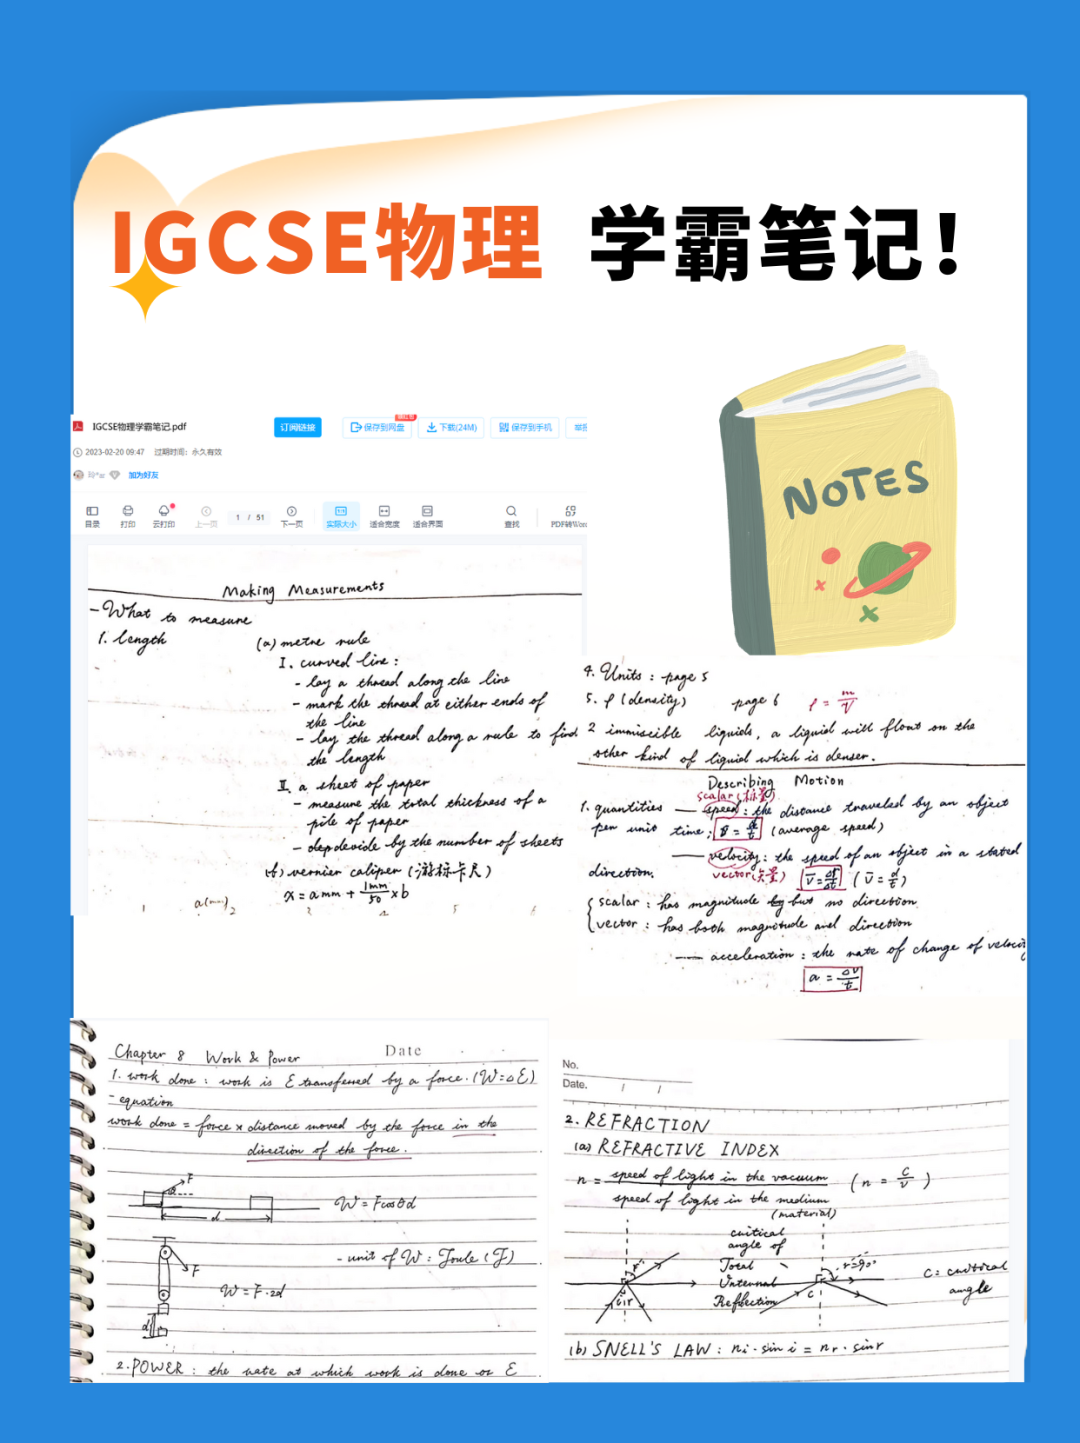 IGCSE物理 学霸笔记!
NOTES
IGCSE物理学霸笔记.pdf
订阅链接
保存到网盘
下载(24M)
保存到手机
2023-02-20 09:47 过期时间：永久有效
加为好友
目录
打印
云打印
上一页
1 / 51
下一页
实际大小
适合宽度
适合界面
查找
PDF转Word
Making Measurements
- What to measure
1. length
(a) metre rule
I. curved line :
- lay a thread along the line
- mark the thread at either ends of
the line
- lay the thread along a rule to find
the length
II. a sheet of paper
- measure the total thickness of a
pile of paper
- devide by the number of sheets
(b) vernier caliper (游标卡尺)
x = a mm + 1mm/50 × b
a(mm)
4. Units : page 5
5. ρ (density) page 6 ρ = m/V
2 immiscible liquids, a liquid will float on the
other kind of liquid which is denser.
Describing Motion
scalar (标量)
1. quantities — speed : the distance traveled by an object
per unit time ; (average speed)
— velocity : the speed of an object in a stated
direction. vector (矢量)
scalar : has magnitude but no direction
vector : has both magnitude and direction
— acceleration : the rate of change of velocity
a = ΔV/t
Chapter 8 Work & Power Date
1. work done : work is E transferred by a force. (W=ΔE)
- equation
work done = force × distance moved by the force in the
direction of the force.
F
W = Fcosθd
d
- unit of W : Joule (J)
F
W = F·2d
d
2. POWER : the rate at which work is done or E
No.
Date. / /
2. REFRACTION
(a) REFRACTIVE INDEX
n = speed of light in the vacuum (n = c/v)
speed of light in the medium
(material)
critical
angle of
Total
Internal
Reflection
r=90°
c
c = critical
angle
(b) SNELL'S LAW : ni · sin i = nr · sin r